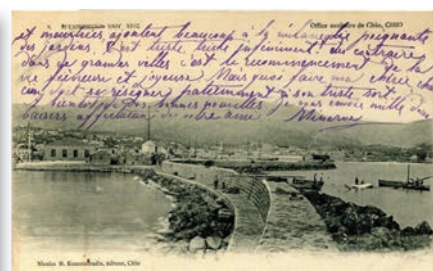 Office sanitaire de Chio, CHIO
et meurtries ajoutent beaucoup à la mélancolie poignante
des jardins. C'est triste, triste infiniment! Au contraire
dans les grandes villes c'est le recommencement de la
vie fiévreuse et joyeuse. Mais quoi faire ma chère cha
cun doit se résigner patiemment à son triste sort
à bientôt de bonnes nouvelles je vous envoie mille
baisers affectueux de votre amie Minerve
Nicolas M. éditeur, Chio